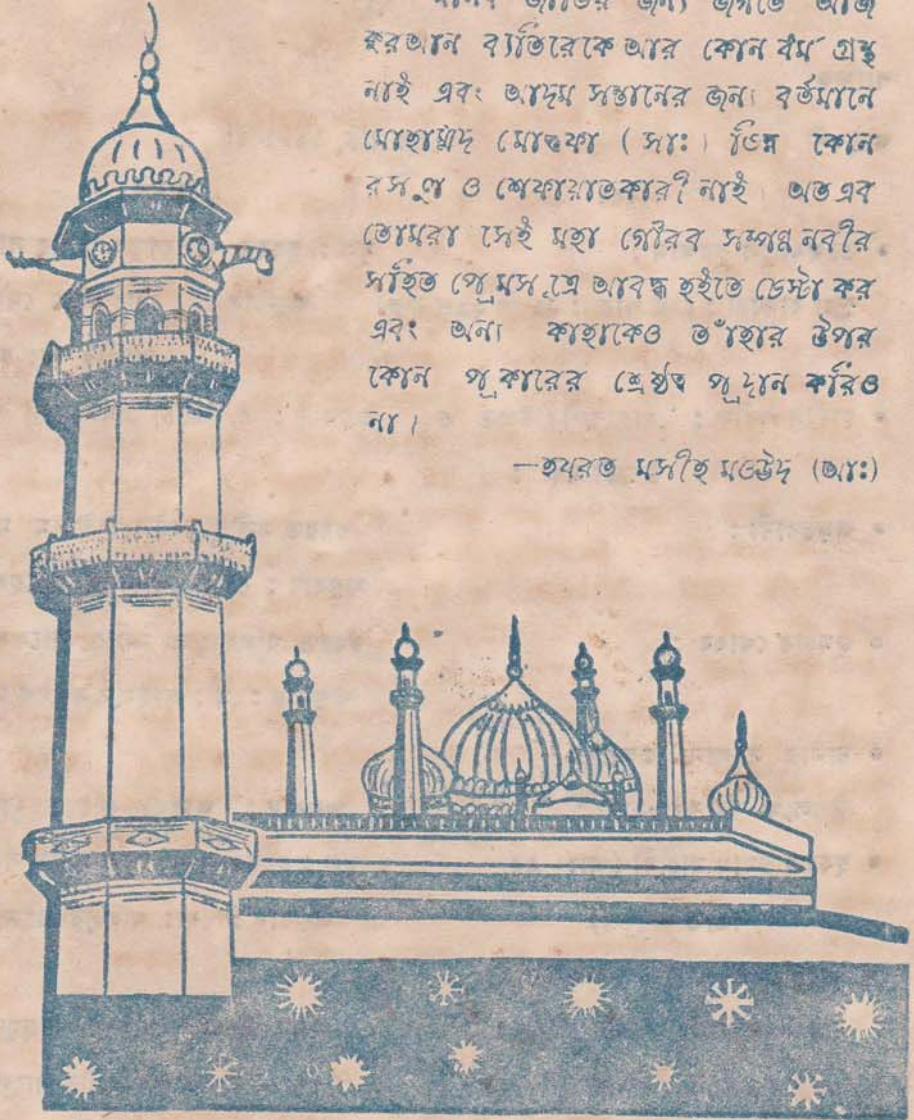 মানব জাতির জন্য জগতে আজ
কুরআন ব্যতিরেকে আর কোন ধর্ম গ্রন্থ
নাই এবং আদম সন্তানের জন্য বর্তমানে
মোহাম্মদ মোস্তফা (সাঃ) ভিন্ন কোন
রসূল ও শেফায়াতকারী নাই। অতএব
তোমরা সেই মহা গৌরব সম্পন্ন নবীর
সহিত প্রেমসূত্রে আবদ্ধ হইতে চেষ্টা কর
এবং অন্য কাহাকেও তাঁহার উপর
কোন প্রকারের শ্রেষ্ঠত্ব প্রদান করিও
না।
—হযরত মসীহ মওউদ (আঃ)